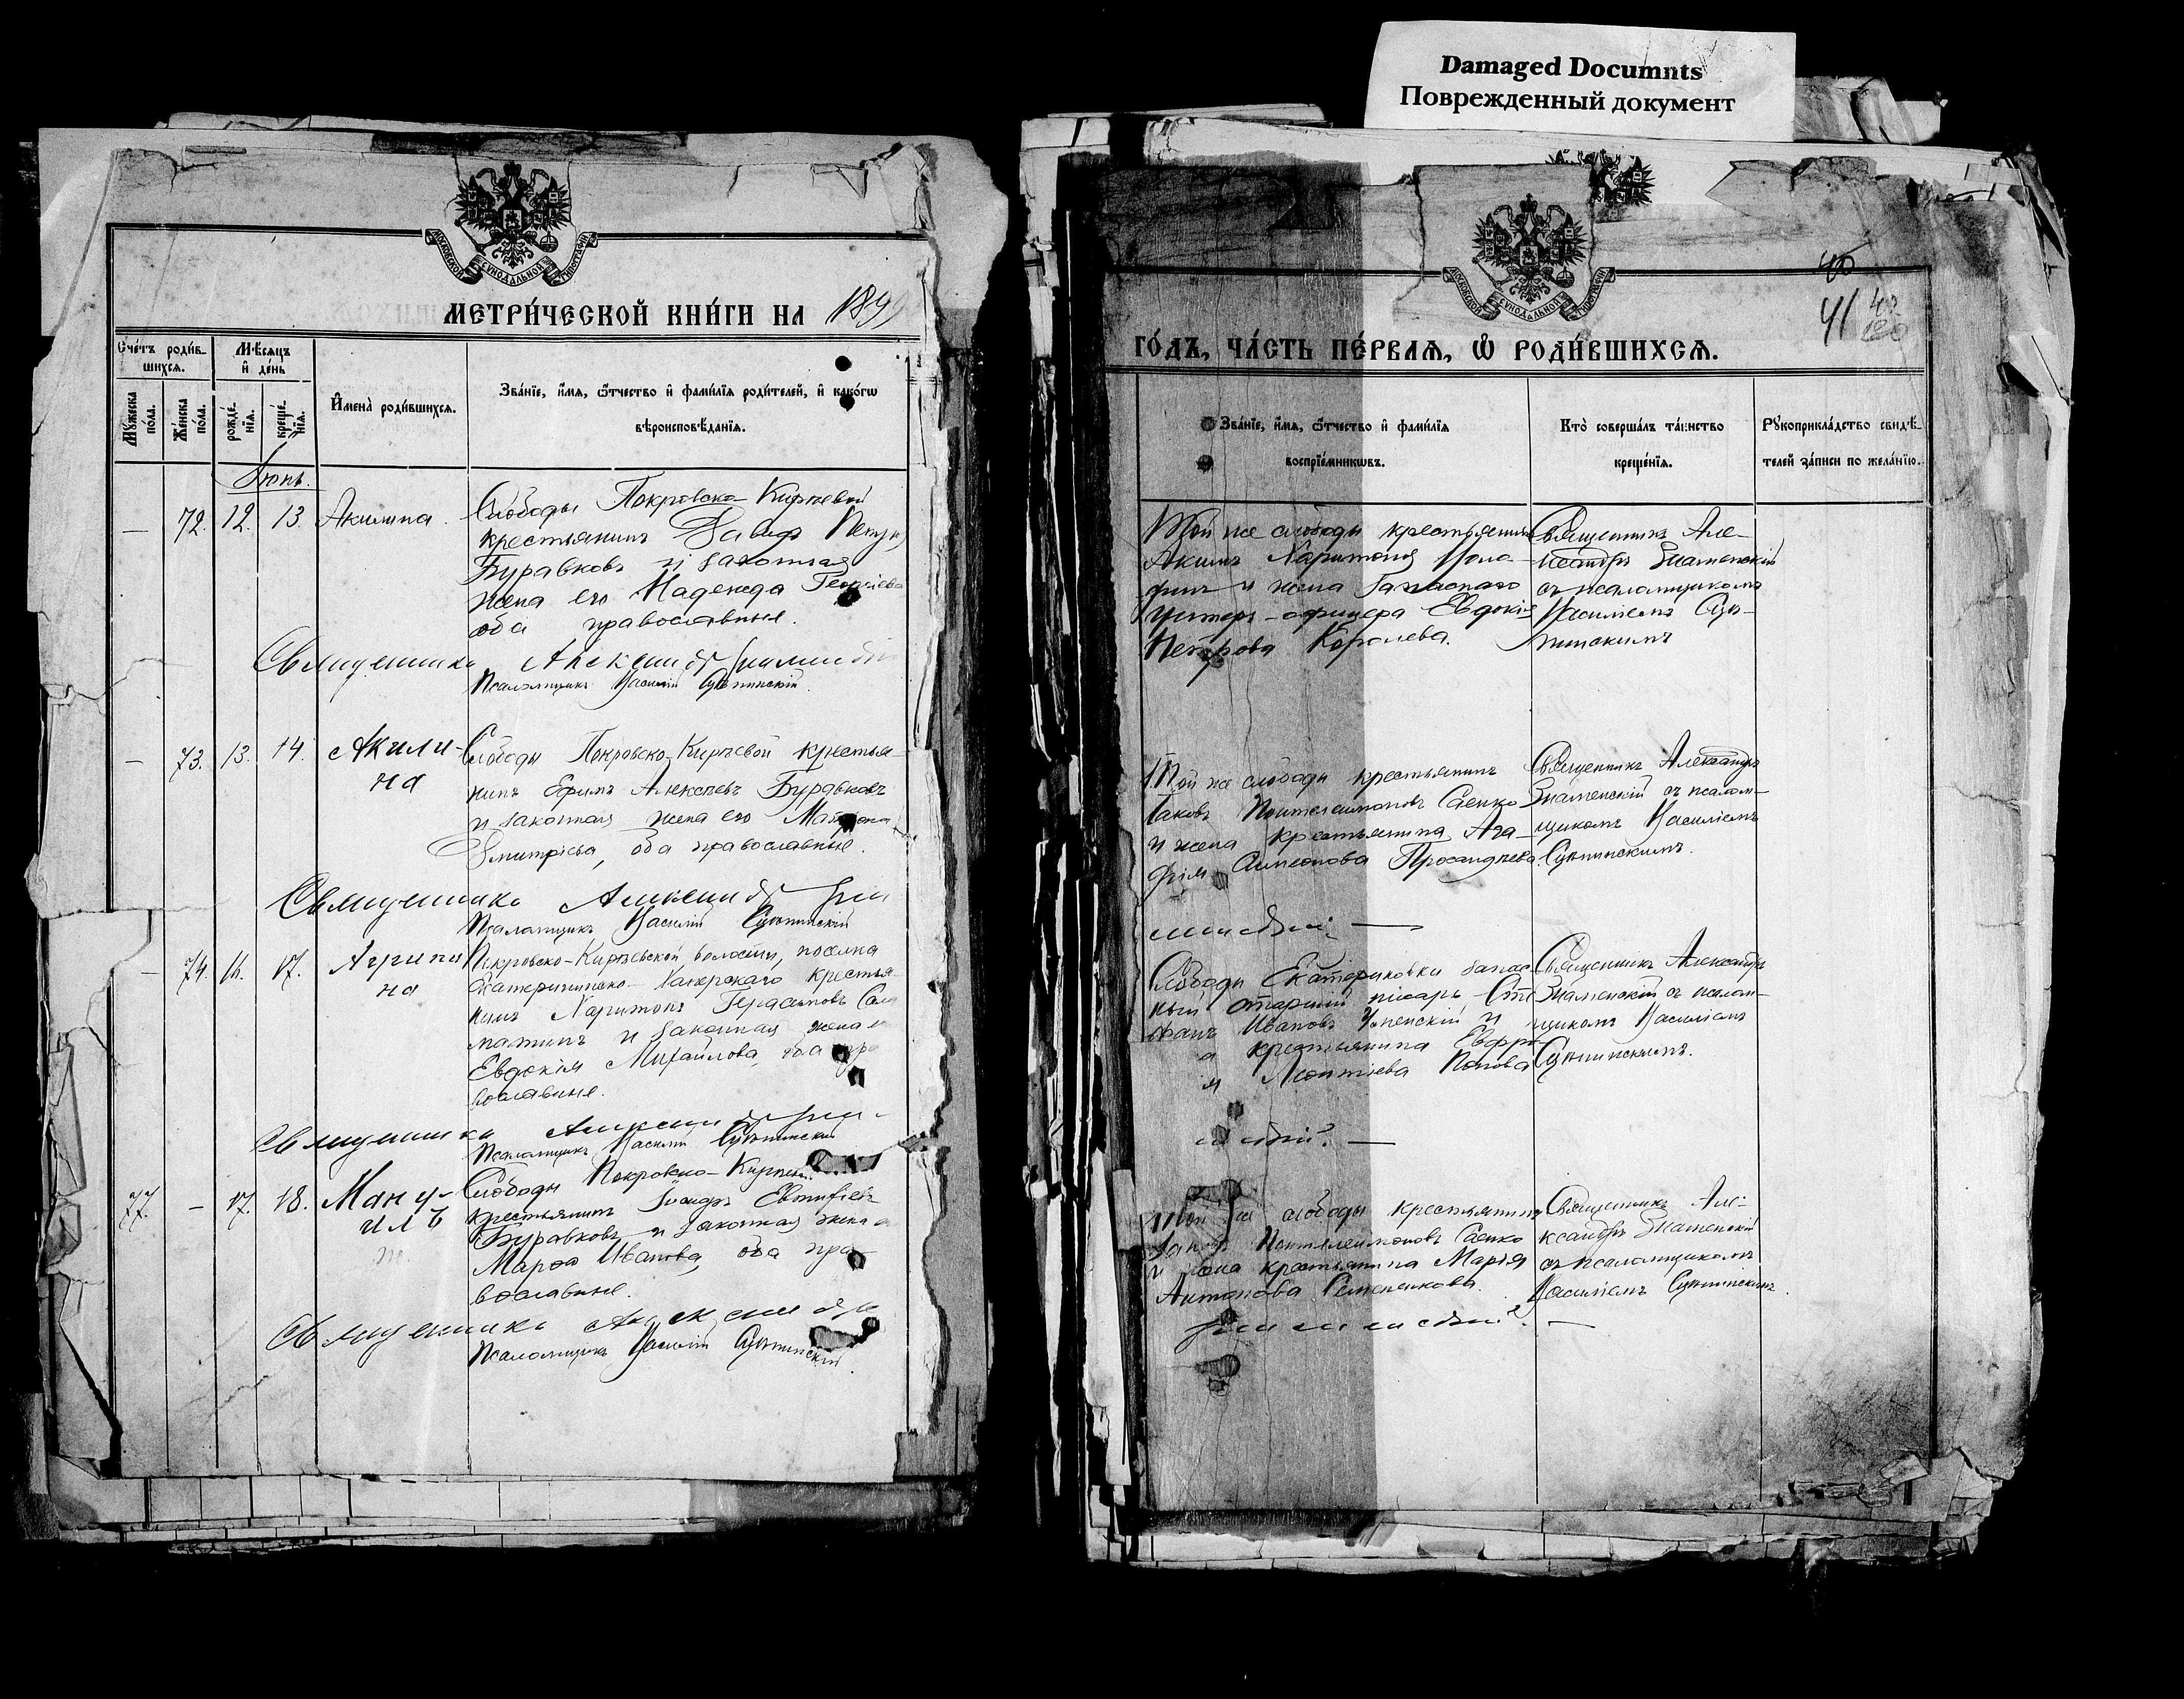 Damaged Documnts
Поврежденный документ
МОСКОВСКОЙ СУНОДАЛЬНОЙ ТИПОГРАФІИ
МЕТРИ́ЧЕСКОЙ КНИ́ГИ НА 1899
Сче́тъ роди́в-
шихся.
Мѣ́сяцъ
и҆ де́нь
Му́жеска
по́ла.
Же́нска
по́ла.
рожде́-
нія.
креще́-
нія.
И҆мена̀ роди́вшихся.
Зва́ніе, и҆́мя, ѻ҆́тчество и҆ фами́лія роди́телей, и҆ како́гѡ
вѣроисповѣ́данія.
Іюнь.
— 72. 12. 13. Акилина.
Слободы Покровско-Кирѣевой
крестьянинъ Давидъ
Буравковъ и законная
жена его Надежда Георгіева
оба православные.
Священникъ Александръ
Псаломщикъ Василій
— 73. 13. 14. Акили-
на
Слободы Покровско-Кирѣевой крестья-
нинъ Ефимъ Алексѣевъ Буравковъ
и законная жена его Матрона
Дмитріева, оба православные.
Священникъ Александръ Зна
Псаломщикъ Василій
— 74. 16. 17. Агрипи
на
Покровско-Кирѣевской волости, поселка
Екатериновско-Хаперскаго крестья-
нинъ Харитонъ Герасимовъ
и законная жена
Евдокія Михайлова, оба пра
вославные.
Священникъ Александръ Зна-
Псаломщикъ Василій
77. — 17. 18. Ману-
илъ
Слободы Покровско-Кирѣевой
крестьянинъ Евтифіевъ
Буравковъ и законная жена
Марѳа Иванова, оба пра
вославные.
Священникъ Александръ
Псаломщикъ Василій
МОСКОВСКОЙ СУНОДАЛЬНОЙ ТИПОГРАФІИ
40
41
ГО́ДЪ, ЧА́СТЬ ПЕ́РВАЯ, Ѡ҆ РОДИ́ВШИХСЯ.
Зва́ніе, и҆́мя, ѻ҆́тчество и҆ фами́лія
воспріе́мникѡвъ.
Кто̀ соверша́лъ та́инство
креще́нія.
Рꙋкоприкла́дство свидѣ́-
телей за́писи по жела́нію.
Той же слободы крестьянинъ
Акимъ Харитоновъ
и жена запаснаго
унтеръ-офицера Евдокія
Петрова Королева.
Священникъ Але-
ксандръ Знаменскій
съ псаломщикомъ
Василіемъ
Той же слободы крестьянинъ
Іаковъ Пантелеимоновъ Саенко
и жена крестьянина Ага-
фія Симеонова
Священникъ Александръ
Знаменскій съ псалом-
щикомъ Василіемъ
менскій. —
Слободы Екатериновки запас-
ный старшій писарь Сте
фанъ Ивановъ и
а крестьянина Евфро
я Леонтіева Попова
Священникъ Александръ
Знаменскій съ псалом-
щикомъ Василіемъ
менскій. —
Той же слободы крестьянинъ
Іаковъ Пантелеимоновъ Саенко
и жена крестьянина Марія
Антонова Семененкова.
Священникъ Але-
ксандръ Знаменскій
съ псаломщикомъ
Василіемъ
Знаменскій. —